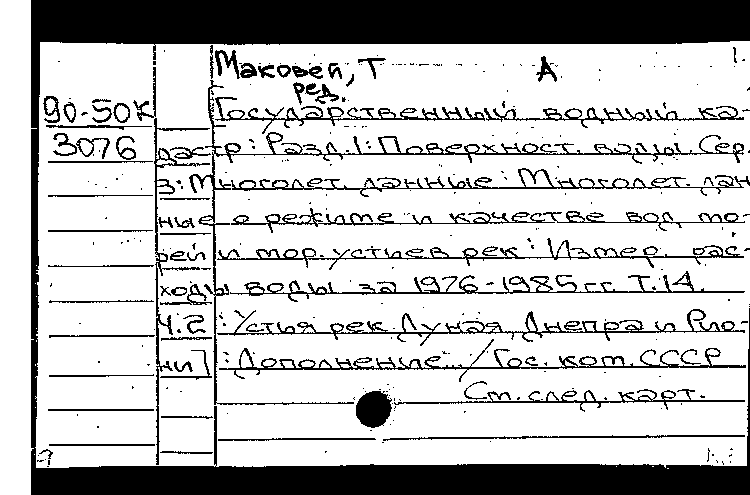 Маковей, Т А 1.
ред.
90-50К Государственный водный ка-
3076 дастр: Разд.1: Поверхност. воды Сер.
3: Многолет. данные: Многолет. дан
ные о режиме и качестве вод мо-
рей и мор. устьев рек: Измер. рас-
ходы воды за 1976-1985 гг. Т.14.
Ч.2: Устья рек Дуная, Днепра и Рио-
ни]: Дополнение.../Гос. ком. СССР
См. след. карт.